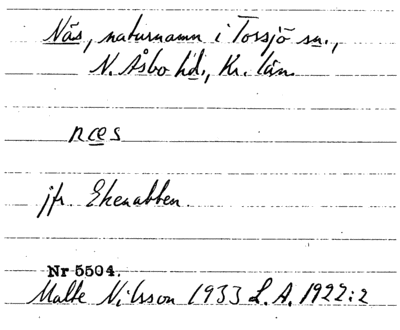 Näs, naturnamn i Tossjö sn.,
N. Åsbo hd., Kr. län.
nœs
jfr. Ekenabben.
Nr 5504.
Malte Nilsson 1933 L.A. 1922:2